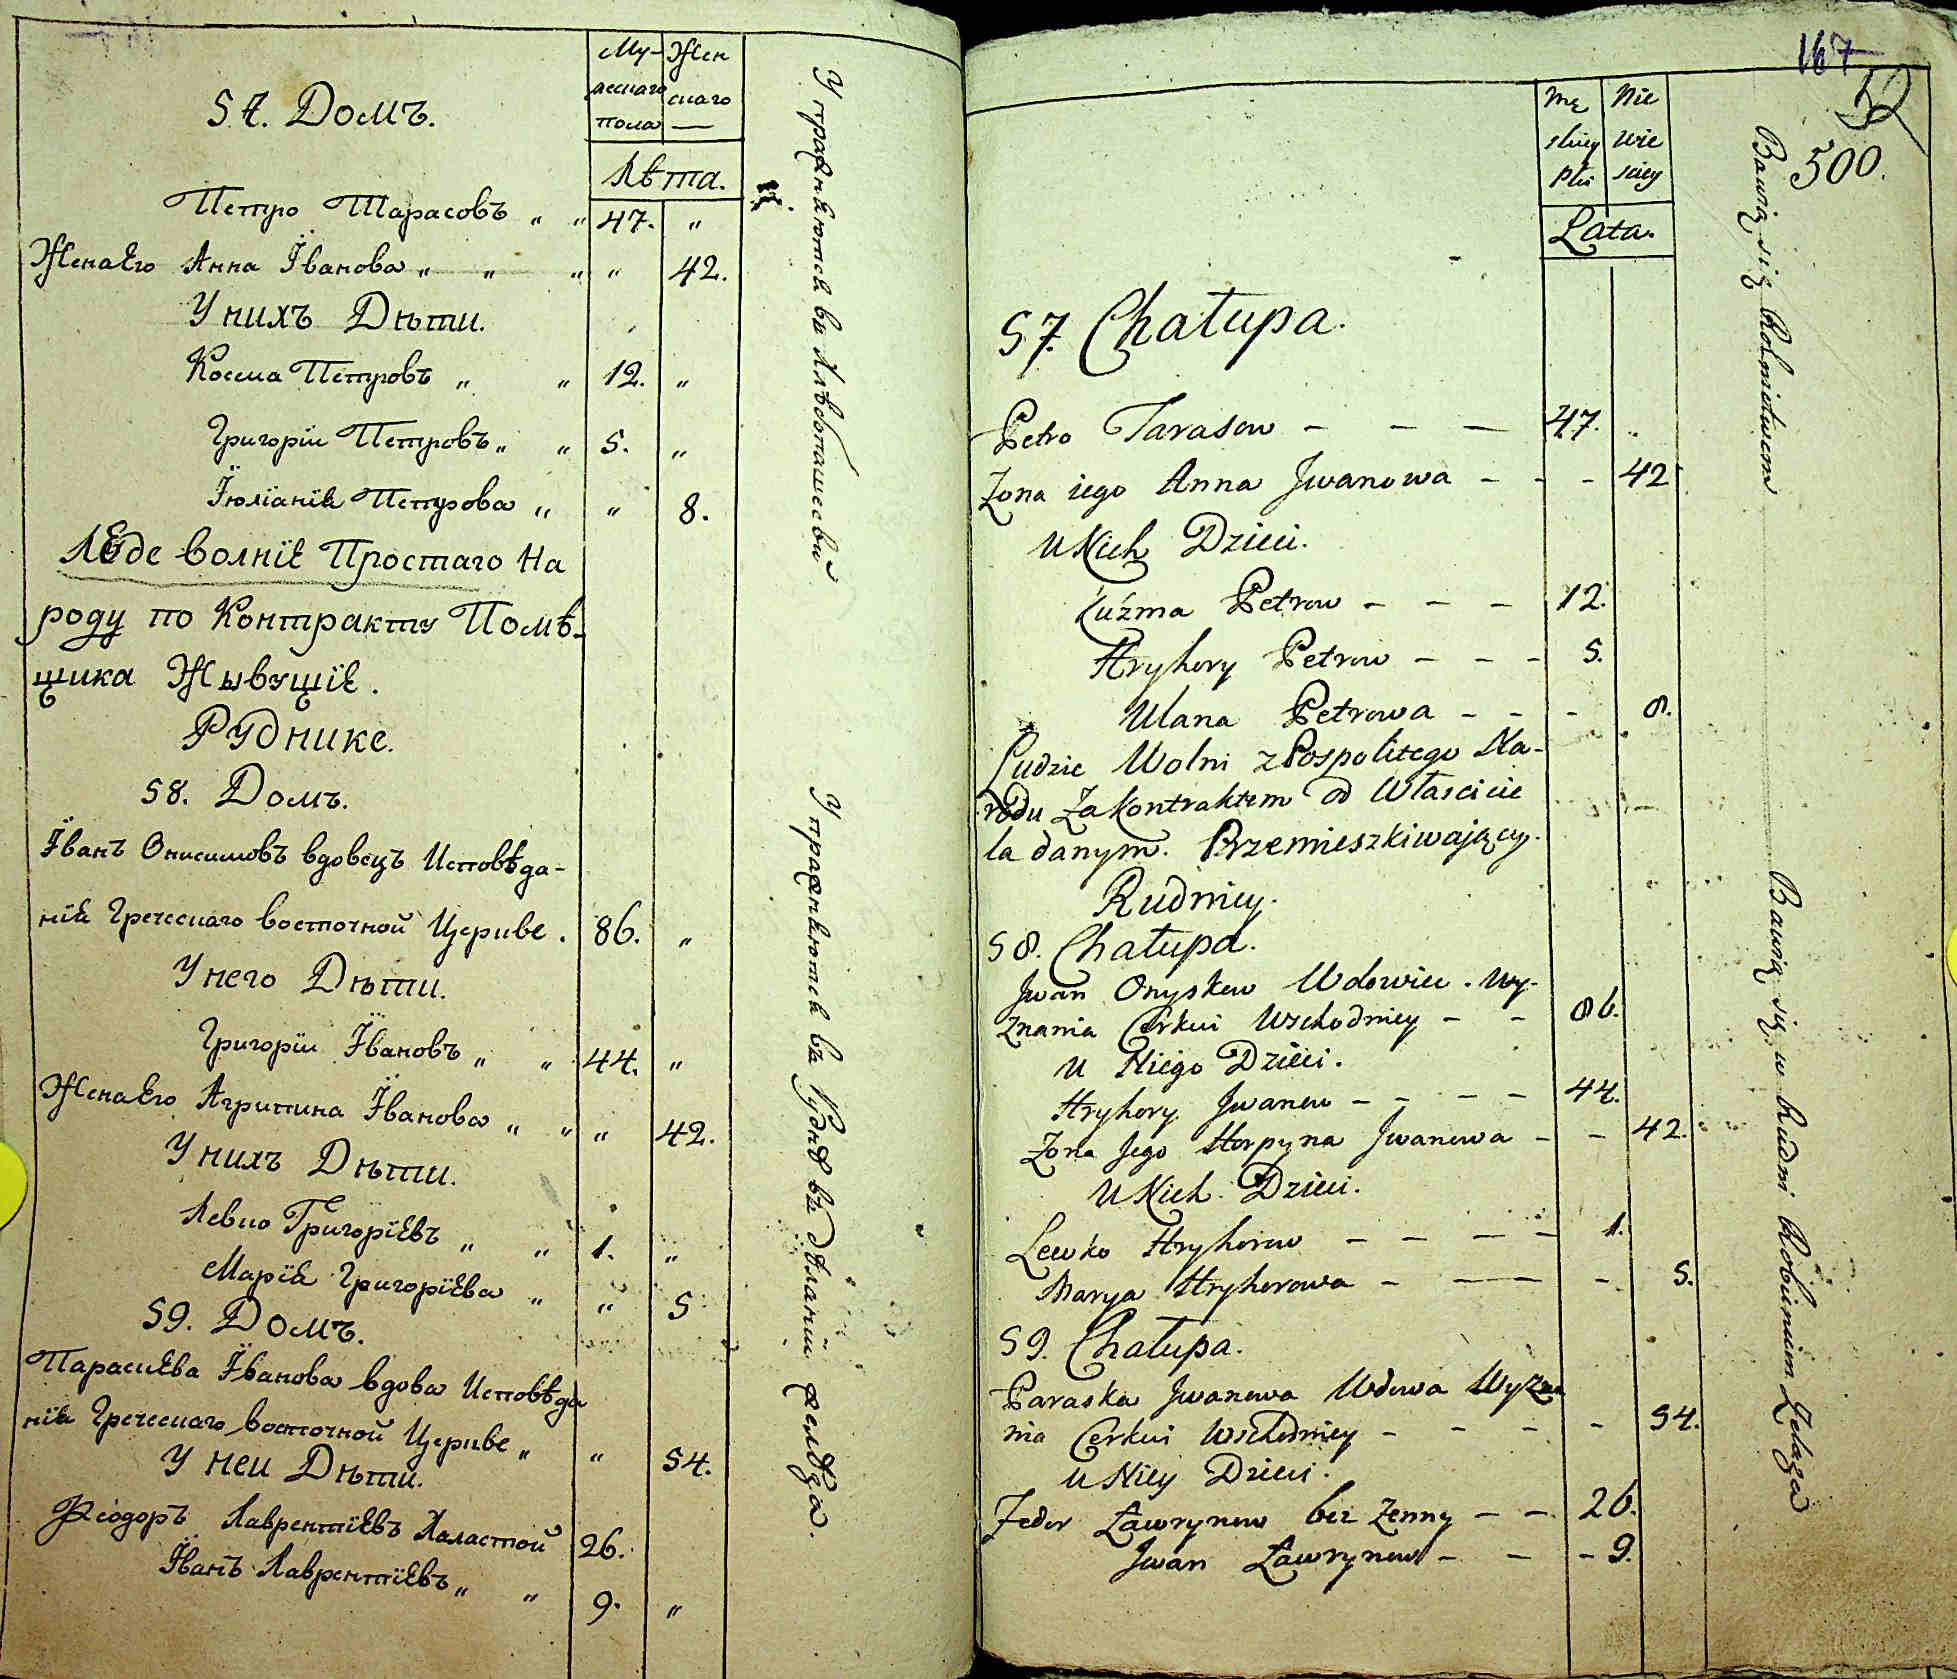 Му- Жен
жескаго скаго
пола —
Лѣта.
57. Домъ.
Петро Тарасовъ „ „ 47. „
Жена Его Анна Їванова „ „ „ „ 42.
У нихъ Дѣти.
Косма Петровъ „ „ 12. „
Григорїи Петровъ „ „ 5. „
Їюлїанїѧ Петрова „ „ 8.
Люде волнїе Простаго На
роду по Контракту Помѣ-
щика Жывущїе.
Руднике.
58. Домъ.
Їванъ Онисимовъ вдовецъ Исповѣда-
нїѧ Греческаго восточной Церкве. 86. „
У него Дѣти.
Григорїи Ївановъ „ „ 44. „
Жена Его Агрипина Їванова „ „ „ 42.
У нихъ Дѣти.
Левко Григорїевъ „ „ 1. „
Марїѧ Григорїева „ „ 5
59. Домъ.
Параскева Їванова вдова Исповѣда
нїѧ Греческаго восточной Церкве „ „ 54.
У неи Дѣти.
Ѳеодоръ Лаврентїевъ Халастой 26.
Їванъ Лаврентїевъ „ „ 9. „
Упражнѧютсѧ въ Хлѣбопашествѣ
Упражнѧютсѧ въ Руднѣ въ дѣланїи желѣза.
167
52
500.
Mę Nie
skiey wie
płci sciey
Lata.
57. Chałupa.
Petro Tarasow - - - 47. „
Zona iego Anna Jwanowa - - - 42
U Nich Dzieci.
Kuźma Petrow - - - 12.
Hryhory Petrow - - - 5.
Ulana Petrowa - - - 8.
Ludzie Wolni z Pospolitego Na-
rodu za kontraktem od Włascicie
la danym. Przemieszkiwaiący.
Rudnicy.
58. Chałupa.
Jwan Onyskow Wdowiec. Wy-
znania Cerkwi Wschodniey - - 86.
U Niego Dzieci.
Hryhory Jwanow - - - - 44.
Zona Jego Horpyna Jwanowa - - 42.
U Nich Dzieci.
Lewko Hryhorow - - - - 1.
Marya Hryhorowa - - - - 5.
59. Chałupa.
Paraska Jwanowa Wdowa Wyzna
nia Cerkwi Wschodniey - - - - 54.
U Niey Dzieci.
Fedor Ławrynow bez Zenny - - 26.
Jwan Ławrynow - - - 9.
Bawią się Rolnictwem
Bawią się w Rudni Robieniem Zelaza